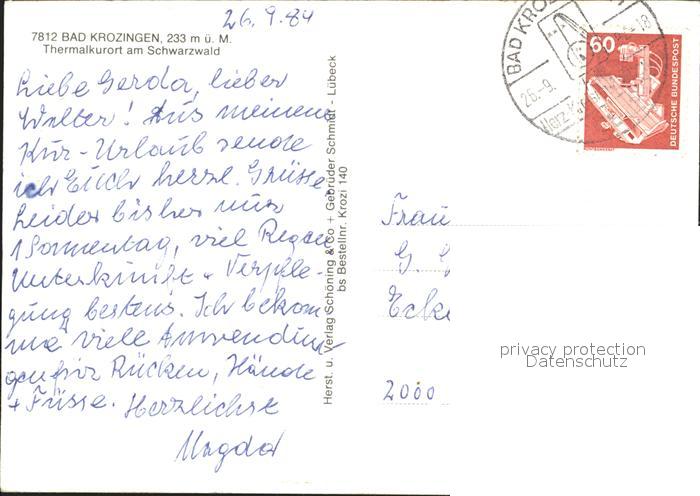 26.9.84
7812 BAD KROZINGEN, 233 m ü. M.
Thermalkurort am Schwarzwald
Liebe Gerda, lieber
Walter! Aus meinem
Kur-Urlaub sende
ich Euch herzl. Grüsse.
Leider bisher nur
1 Sonnentag, viel Regen
Unterkunft u. Verpfle-
gung bestens. Ich bekom-
me viele Anwendun-
gen für Rücken, Hände
+ Füsse. Herzlichst
Magda
Herst. u. Verlag Schöning & Co + Gebrüder Schmidt - Lübeck
bs Bestellnr. Krozi 140
BAD KROZ
26.-9.
-18
Herz-K
60
DEUTSCHE BUNDESPOST
Frau
G. G
Ecke
2000
privacy protection
Datenschutz